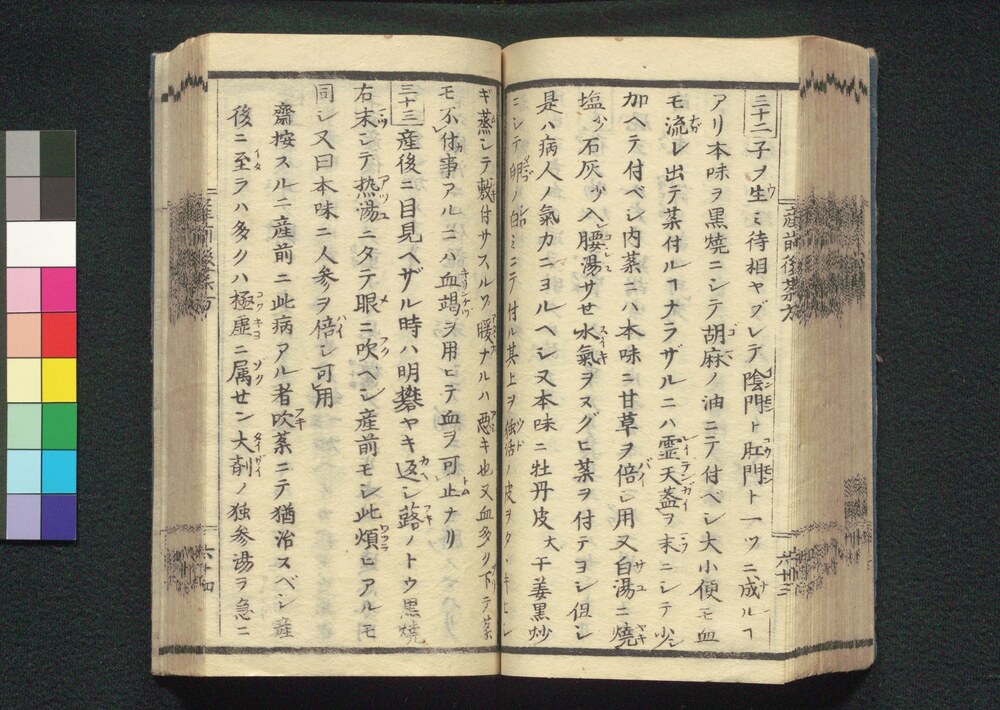 三十二子ヲ生ミ待相ヤブレテ陰門ト肛門ト一ツニ成ルヿ
アリ本味ヲ黒焼ニシテ胡麻ノ油ニテ付ベシ大小便モ血
モ流レ出テ薬付ルヿナラザルニハ霊天蓋ヲ末ニシテ少シ
加ヘテ付ベシ内薬ニハ本味ニ甘草ヲ倍シ用又白湯ニ焼
塩少石灰少入レ腰湯サセ水氣ヲヌグヒ薬ヲ付テヨシ但シ
是ハ病人ノ氣カニヨルヘシ又本味ニ牡丹皮大干姜黒炒
ニシテ卵ノ白ミニテ付ル其上ヲ独活ノ皮ヲ
ギ蒸シテ敷付サスルヿ暖ナルハ悪キ也又血多ク下テ薬
モ不付事アルニハ血竭ヲ用ヒテ血ヲ可止ナリ
三十三産後ニ目見ヘザル時ハ明礬ヤキ返シ蕗ノトウ黒焼
右末シテ热湯ニタテ眼ニ吹ベシ産前モシ此煩ヒアルモ
同シ又曰本味ニ人参ヲ倍シ可用
齋按スルニ産前ニ此病アル者吹薬ニテ猶治スベシ産
後ニ至ラハ多クハ極虚ニ属セン大剤ノ独参湯ヲ急ニ
産前後薬方
六十三
六十四